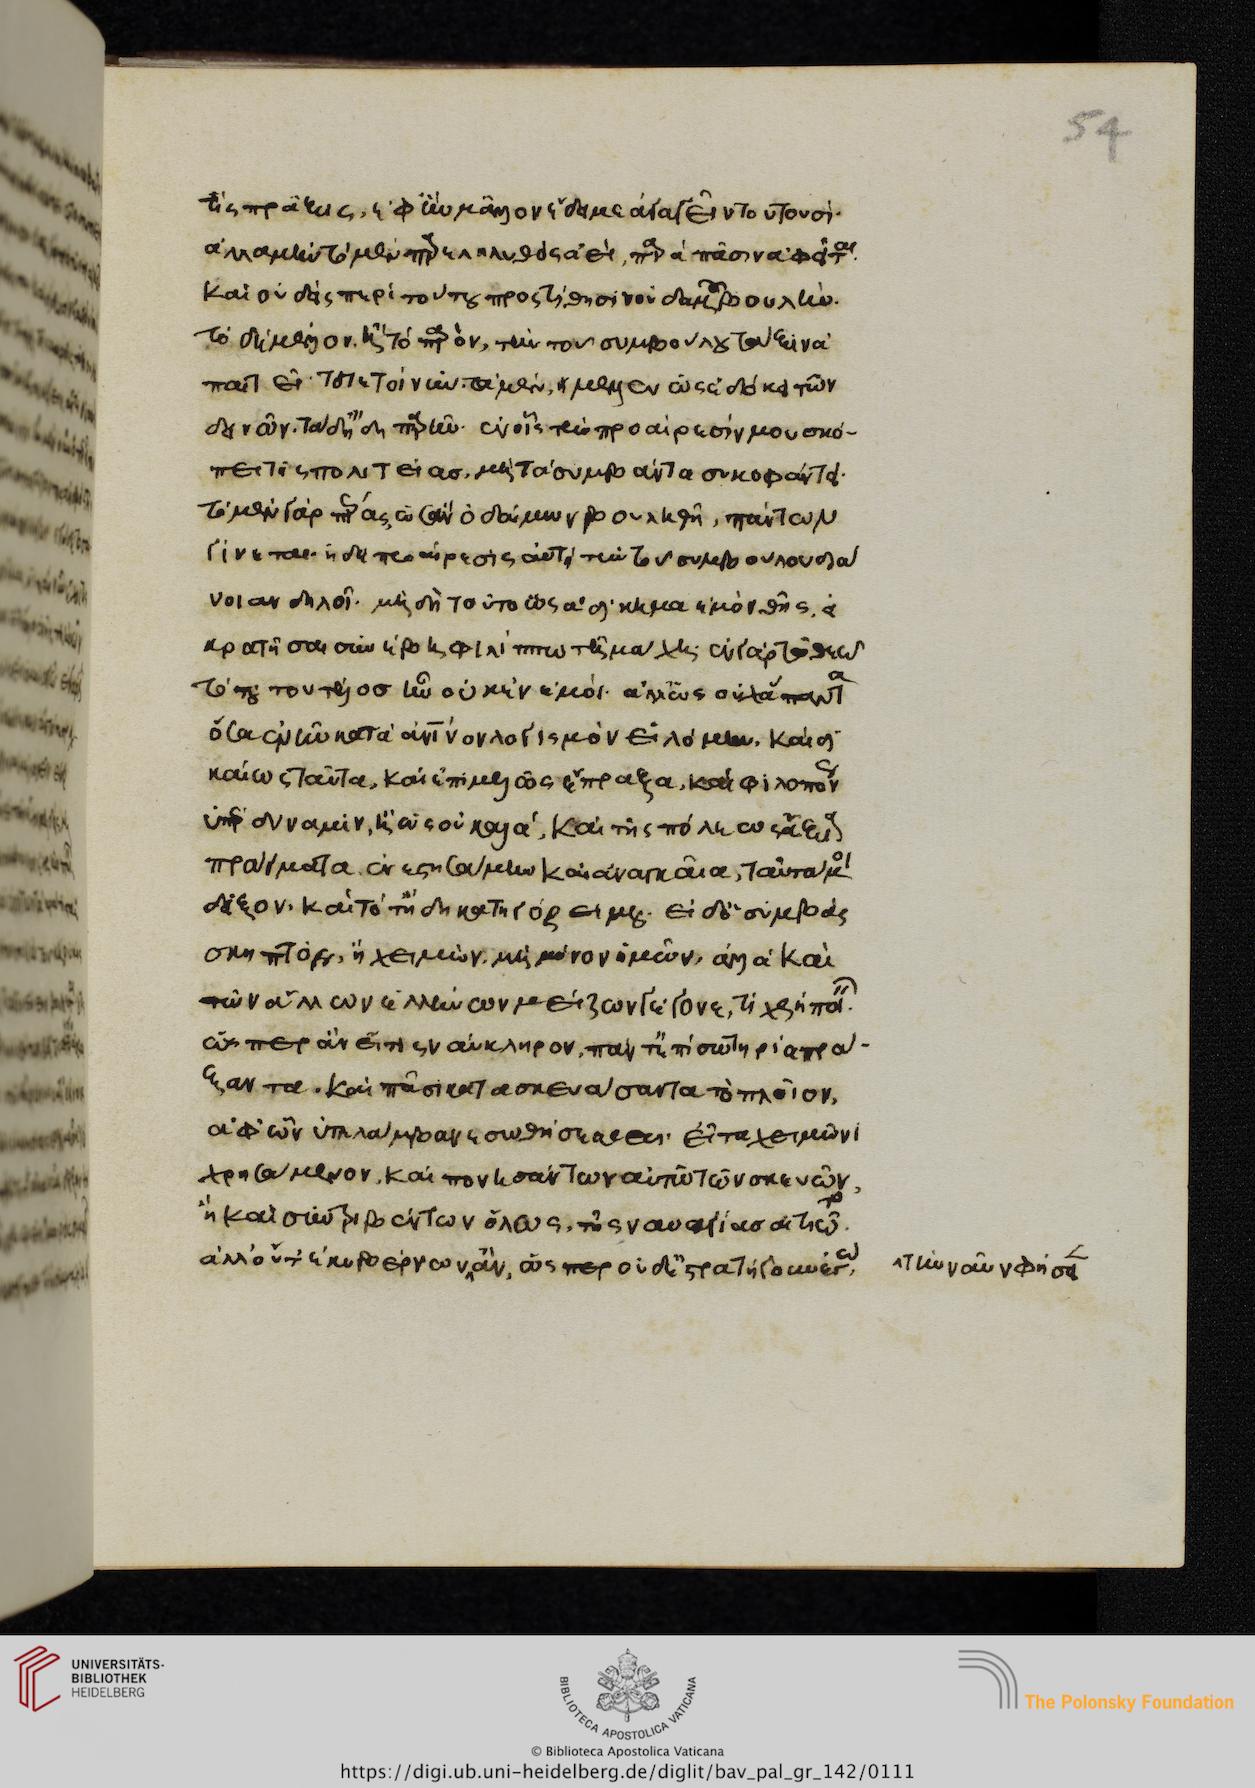 54
τίς πράξις, ἐφ' ἣν μᾶλλον ἔδει με ἀγαγεῖν τουτουσί·
ἀλλὰ μὴν τὸ μὲν παρεληλυθὸς ἀεὶ, παρὰ πᾶσιν ἀφεῖται.
καὶ οὐδεὶς περὶ τούτου προστίθησιν οὐδαμοῦ βουλήν.
τὸ δὲ μέλλον. ἢ τὸ παρὸν, τὴν τοῦ συμβούλου τάξιν ἀ
παιτεῖ· τότε τοίνυν. τὰ μὲν, ἤμελλεν ὡς ἐδόκει τῶν
δεινῶν. τὰ δ' ἤδη παρῆν. ἐν οἷς τὴν προαίρεσίν μου σκό-
πει τῆς πολιτείας. μὴ τὰ συμβάντα συκοφάντει.
τὸ μὲν γὰρ πέρας, ὡς ἂν ὁ δαίμων βουληθῇ, πάντων
γίνεται· ἡ δὲ προαίρεσις αὐτὴ τὴν τοῦ συμβούλου διά
νοιαν δηλοῖ. μὴ δὴ τοῦτο ὡς ἀδίκημα ἐμὸν θῇς, εἰ
κρατῆσαι συνέβη φιλίππω τῆ μάχη. ἐν γὰρ τῷ θεῷ
τὸ τούτου τέλος ἦν οὐκ ἐν ἐμοί. ἀλλ' ὡς οὐχ ἅπαντα
ὅσα ἐνῆν κατὰ ἀνθρώπινον λογισμὸν εἱλόμην. καὶ δι
καίως ταῦτα, καὶ ἐπιμελῶς ἔπραξα, καὶ φιλοπόνως
ὑπὲρ δύναμιν, ἢ ὡς οὐ καλὰ, καὶ τῆς πόλεως ἄξια
πράγματα ἐνεστησάμην καὶ ἀναγκαῖα, ταῦτά μοι
δεῖξον. καὶ τότ' ἤδη κατηγόρει μου. εἰ δ' ὁ συμβὰς
σκηπτὸς, ἢ χειμὼν, μὴ μόνον ἡμῶν, ἀλλὰ καὶ
τῶν ἄλλων ἑλλήνων μείζων γέγονε, τί χρὴ ποιεῖν.
ὥσπερ ἂν εἴ τις ναύκληρον, πάντ' ἐπὶ σωτηρία πρά-
ξαντα. καὶ πᾶσι κατασκευάσαντα τὸ πλοῖον,
ἀφ' ὧν ὑπελάμβανε σωθήσεσθαι. εἶτα χειμῶνι
χρησάμενον, καὶ πονησάντων αὐτῷ τῶν σκευῶν,
ἢ καὶ συντριβέντων ὅλως, τῆς ναυαγίας αἰτιῷτο.
ἀλλ' οὔτ' ἐκυβέρνων ἂν, ὥσπερ οὐδ' ἐστρατήγουν ἐγώ, τὴν ναῦν φήσειεν
UNIVERSITÄTS-
BIBLIOTHEK
HEIDELBERG
BIBLIOTECA APOSTOLICA VATICANA
The Polonsky Foundation
© Biblioteca Apostolica Vaticana
https://digi.ub.uni-heidelberg.de/diglit/bav_pal_gr_142/0111